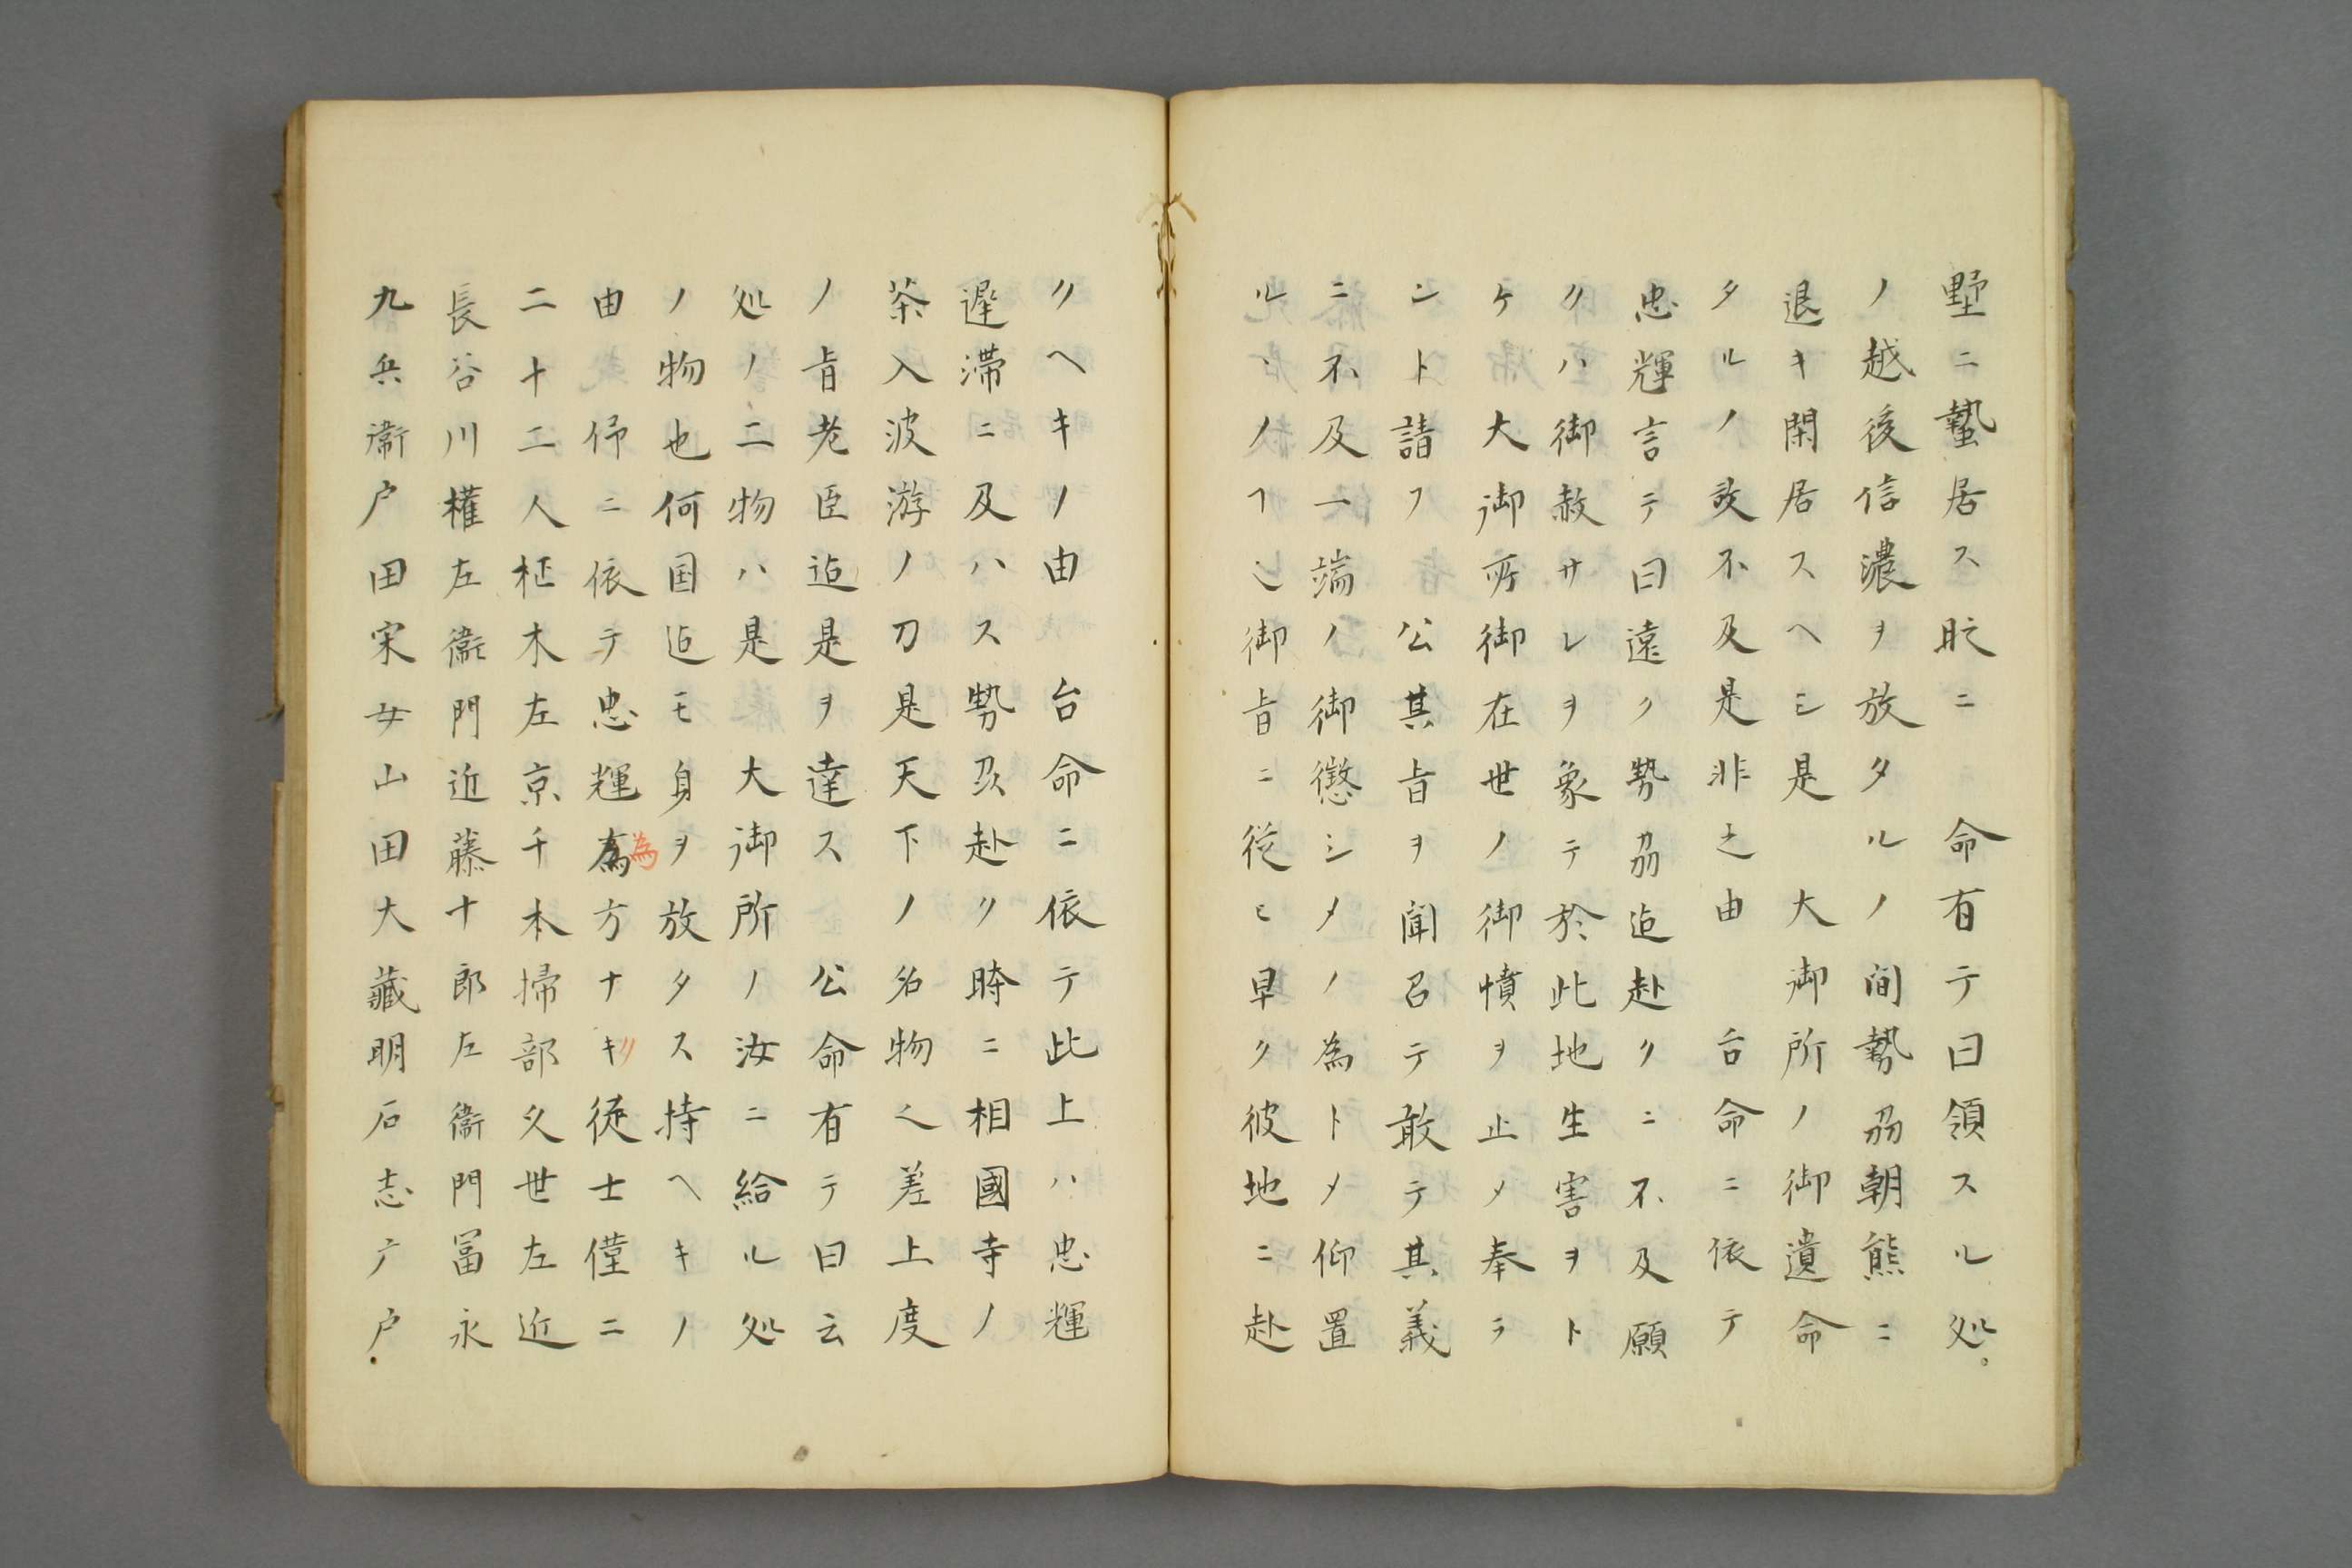 墅ニ蟄居ス时ニ　命有テ曰領スル处
ノ越後信濃ヲ放タルノ間勢刕朝熊ニ
退キ閑居スヘシ是　大御所ノ御遺命
タルノ故不及是非之由　台命ニ依テ
忠輝言テ曰遠ク勢刕迠赴クニ不及願
クハ御赦サレヲ象テ於此地生害ヲト
ケ大御所御在世ノ御憤ヲ止メ奉ラ
ント請フ　公其旨ヲ聞召テ敢テ其義
ニ不及一端ノ御懲シメノ為トメ仰置
ルヽノ御旨ニ従ヒ早ク彼地ニ赴
クヘキノ由　台命ニ依テ此上ハ忠輝
遅滞ニ及ハス勢刕赴ク時ニ相國寺ノ
茶入波游ノ刀是天下ノ名物也差上度
ノ旨老臣迠是ヲ達ス　公命有テ曰云
処ノ二物ハ是　大御所ノ汝ニ給ル処
ノ物也何国迠モ身ヲ放タス持ヘキノ
由仰ニ依テ忠輝為方ナキ徒士僅ニ
為
リ
二十二人柾木左京千本掃部久世左近
長谷川權左衞門近藤十郎左衞門冨永
九兵衞戸田宋女山田大藏明石志广戸